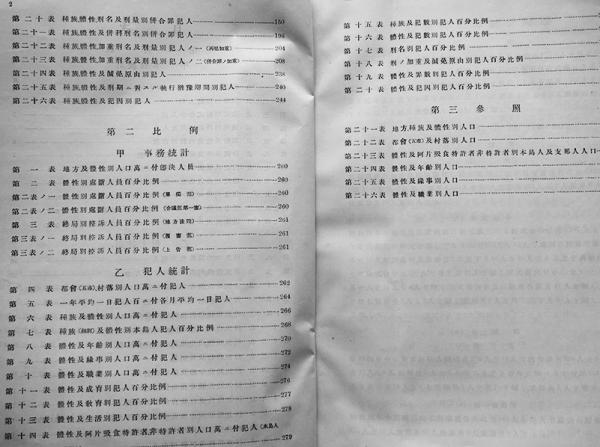 2
第二十表 種族體性刑名及刑量別併合罪犯人 150
第二十一表 種族體性及併科刑名別併合罪犯人 194
第二十二表 種族體性加重刑名及刑量別犯人ノ一 204
第二十三表 種族體性加重刑名及刑量別犯人ノ二(併合罪ノ加重) 208
第二十四表 種族體性及減免原由別犯人 238
第二十五表 種族體性及刑期ニ對スル執行猶豫期間別犯人 240
第二十六表 種族體性及犯因別犯人 244
第二 比例
甲 事務統計
第一表 地方及體性別人口萬ニ付卽決人員 260
第二表 體性別處斷人員百分比例 260
第二表ノ一 體性別處斷人員百分比例 260
第二表ノ二 體性別處斷人員百分比例 260
第三表 終局別控訴人員百分比例(地方法院) 261
第三表ノ一 終局別控訴人員百分比例(覆審部) 261
第三表ノ二 終局別控訴人員百分比例(上告部) 261
乙 犯人統計
第四表 都會(五市)村落別人口萬ニ付犯人 262
第五表 一年平均一日犯人百ニ付各月平均一日犯人 264
第六表 種族及體性別人口萬ニ付犯人 266
第七表 種族及體性別本島人犯人百分比例 268
第八表 體性及年齡別人口萬ニ付犯人 270
第九表 體性及緣事別人口萬ニ付犯人 272
第十表 體性及職業別人口萬ニ付犯人 274
第十一表 體性及成育別犯人百分比例 276
第十二表 體性及敎育別犯人百分比例 277
第十三表 體性及生活別犯人百分比例 278
第十四表 體性及阿片吸食特許者非特許者別人口萬ニ付犯人(本島人 279
第十五表 種族及犯數別犯人百分比例
第十六表 體性及犯數別犯人百分比例
第十七表 刑名別犯人百分比例
第十八表 刑ノ加重及減免原由別犯人百分比例
第十九表 體性及罪數別犯人百分比例
第二十表 體性及犯因別犯人百分比例
第三 參照
第二十一表 地方種族及體性別人口
第二十二表 都會(五市)及村落別人口
第二十三表 體性及阿片吸食特許者非特許者別本島人及支那人人口
第二十四表 體性及年齡別人口
第二十五表 體性及緣事別人口
第二十六表 體性及職業別人口